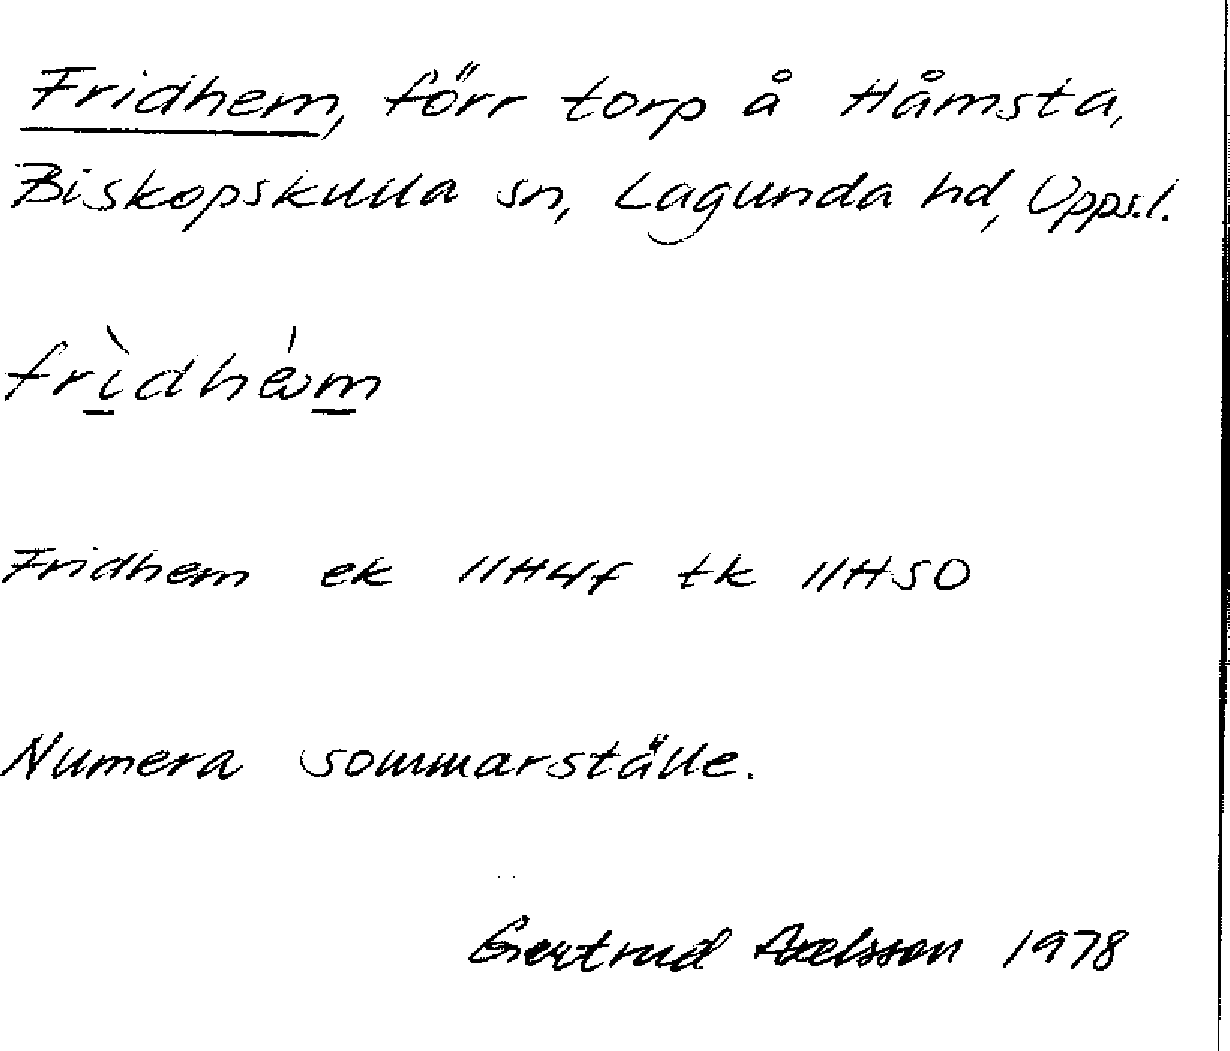 Fridhem, förr torp å Håmsta,
Biskopskulla sn, Lagunda hd, Uppsl.
frìdhém
Fridhem ek 11H4f tk 11HSO
Numera sommarställe.
Gertrud Axelsson 1978